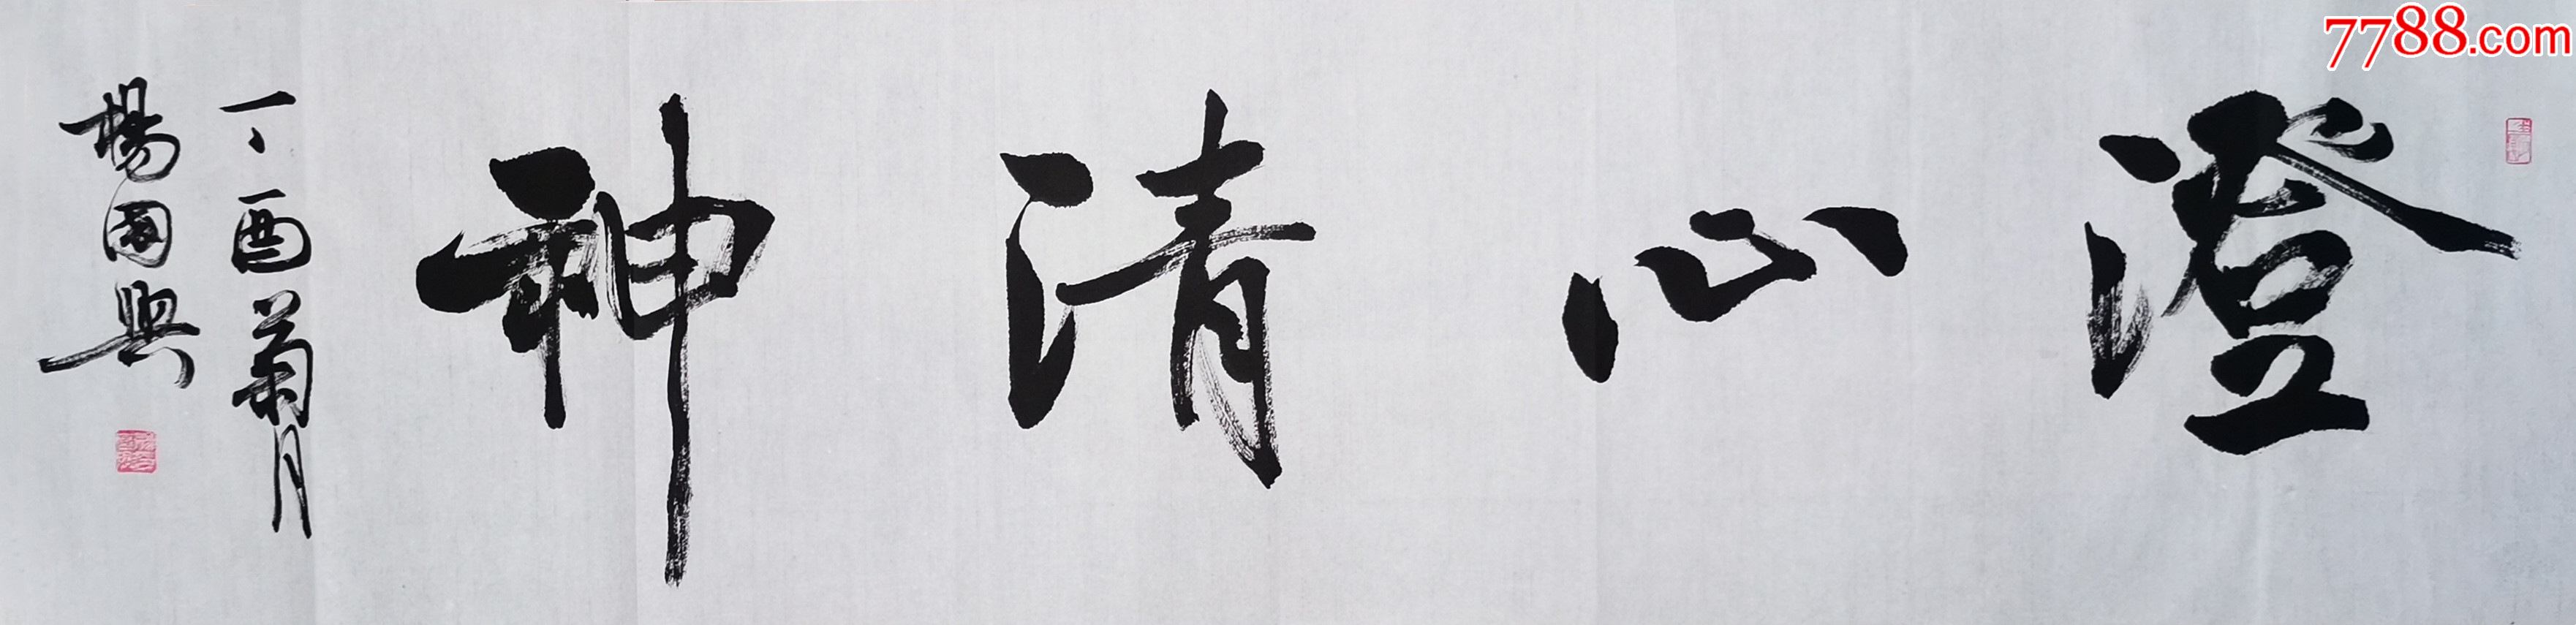 澄心清神
丁酉菊月
楊國興
7788.com